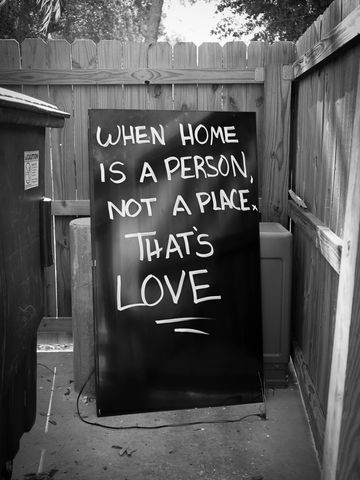 WHEN HOME
IS A PERSON,
NOT A PLACE.
THAT'S
LOVE